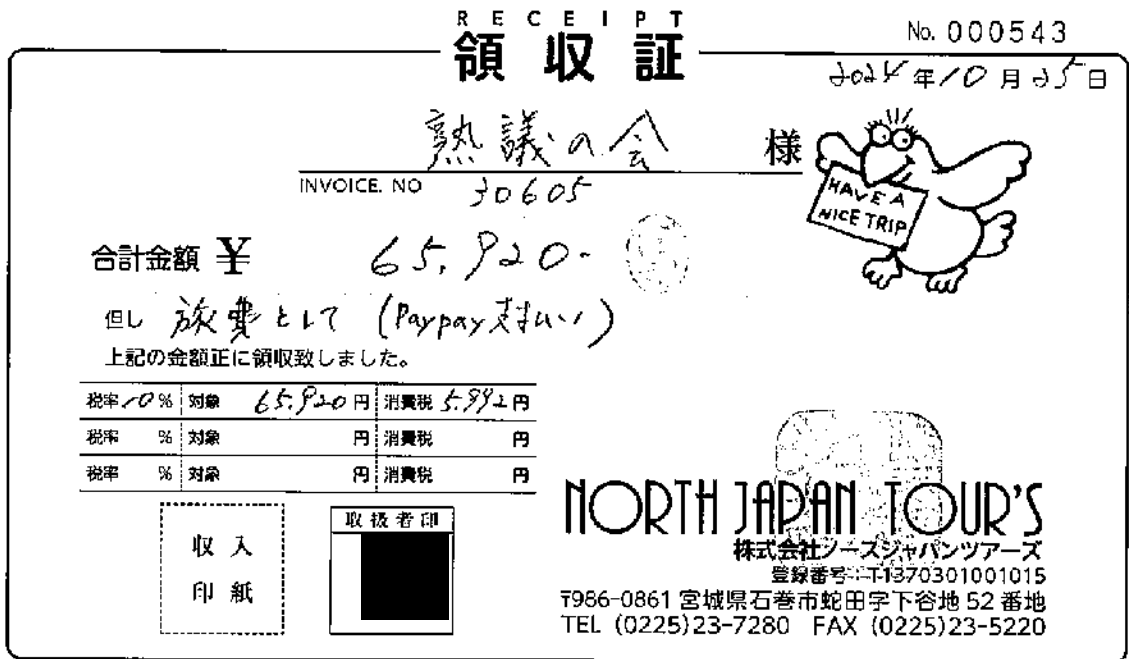 RECEIPT
領収証
No. 000543
2024年10月25日
熟議の会 様
INVOICE. NO 30605
合計金額 ¥ 65,920-
但し 旅費として (Paypay支払い)
上記の金額正に領収致しました。
税率10% 対象 65,920円 消費税 5,992円
税率 % 対象 円 消費税 円
税率 % 対象 円 消費税 円
収入
印紙
取扱者印
HAVE A
NICE TRIP
NORTH JAPAN TOUR'S
株式会社ノースジャパンツアーズ
登録番号:T1370301001015
〒986-0861 宮城県石巻市蛇田字下谷地52番地
TEL (0225)23-7280 FAX (0225)23-5220